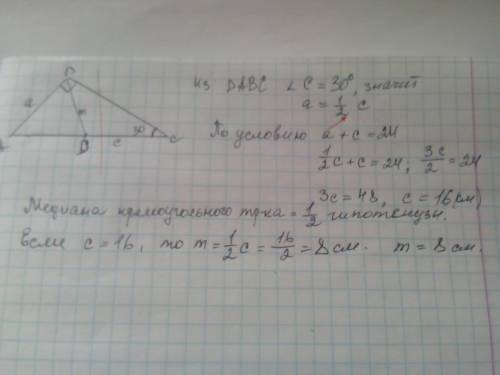 из DABC ∠C = 30°, значит
a = 1/2 c
По условию a + c = 24
1/2 c + c = 24; 3c/2 = 24
3c = 48, c = 16 (см)
Медиана прямоугольного тр-ка = 1/2 гипотенузы.
Если c = 16, то m = 1/2 c = 16/2 = 8 см. m = 8 см.
a
m
30
C
D
c